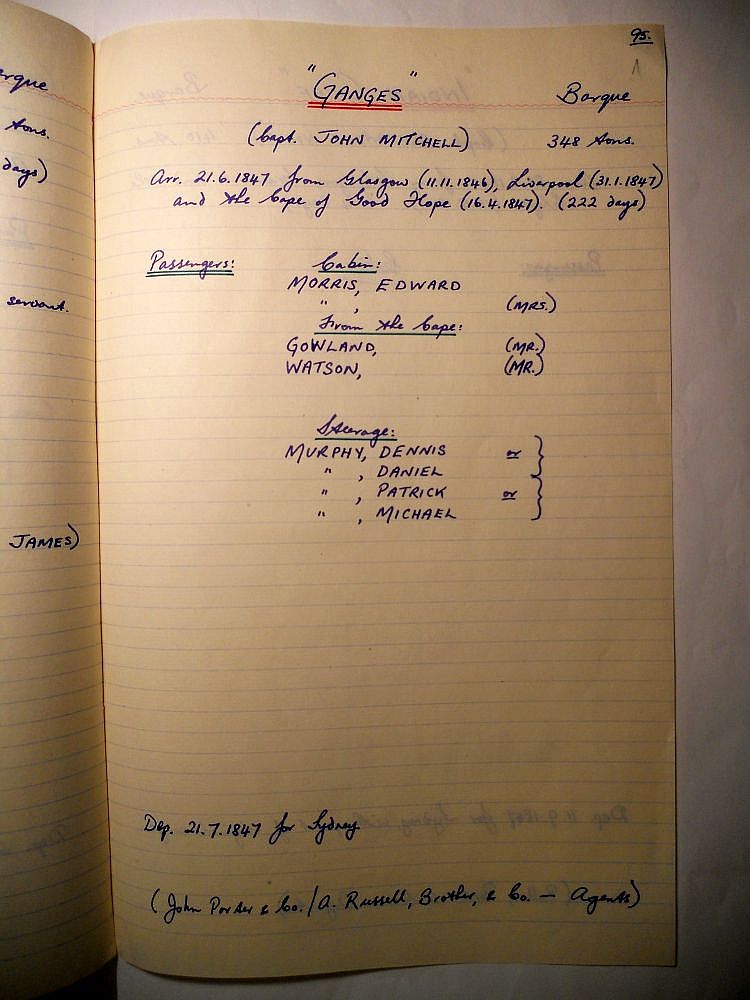 95.
"GANGES" Barque
(Capt. JOHN MITCHELL) 348 tons.
Arr. 21.6.1847 from Glasgow (11.11.1846), Liverpool (31.1.1847)
and the Cape of Good Hope (16.4.1847). (222 days)
Passengers: Cabin:
MORRIS, EDWARD
" , (MRS.)
From the Cape:
GOWLAND, (MR.)
WATSON, (MR.)
Steerage:
MURPHY, DENNIS or }
" , DANIEL
" , PATRICK or }
" , MICHAEL
Dep. 21.7.1847 for Sydney
(John Porder & Co. / A. Russell, Brother, & Co. — Agents)
tons.
days)
servant.
JAMES)